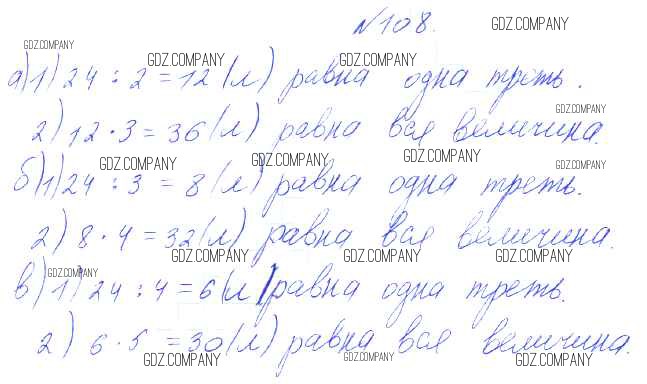 №108.
GDZ.COMPANY
GDZ.COMPANY
GDZ.COMPANY GDZ.COMPANY
а) 1) 24 : 2 = 12 (л) равна одна треть.
GDZ.COMPANY
2) 12 · 3 = 36 (л) равна вся величина.
GDZ.COMPANY GDZ.COMPANY GDZ.COMPANY GDZ.COMPANY
б) 1) 24 : 3 = 8 (л) равна одна треть.
2) 8 · 4 = 32 (л) равна вся величина.
GDZ.COMPANY GDZ.COMPANY GDZ.COMPANY
GDZ.COMPANY
в) 1) 24 : 4 = 6 (л) равна одна треть.
2) 6 · 5 = 30 (л) равна вся величина.
GDZ.COMPANY GDZ.COMPANY GDZ.COMPANY